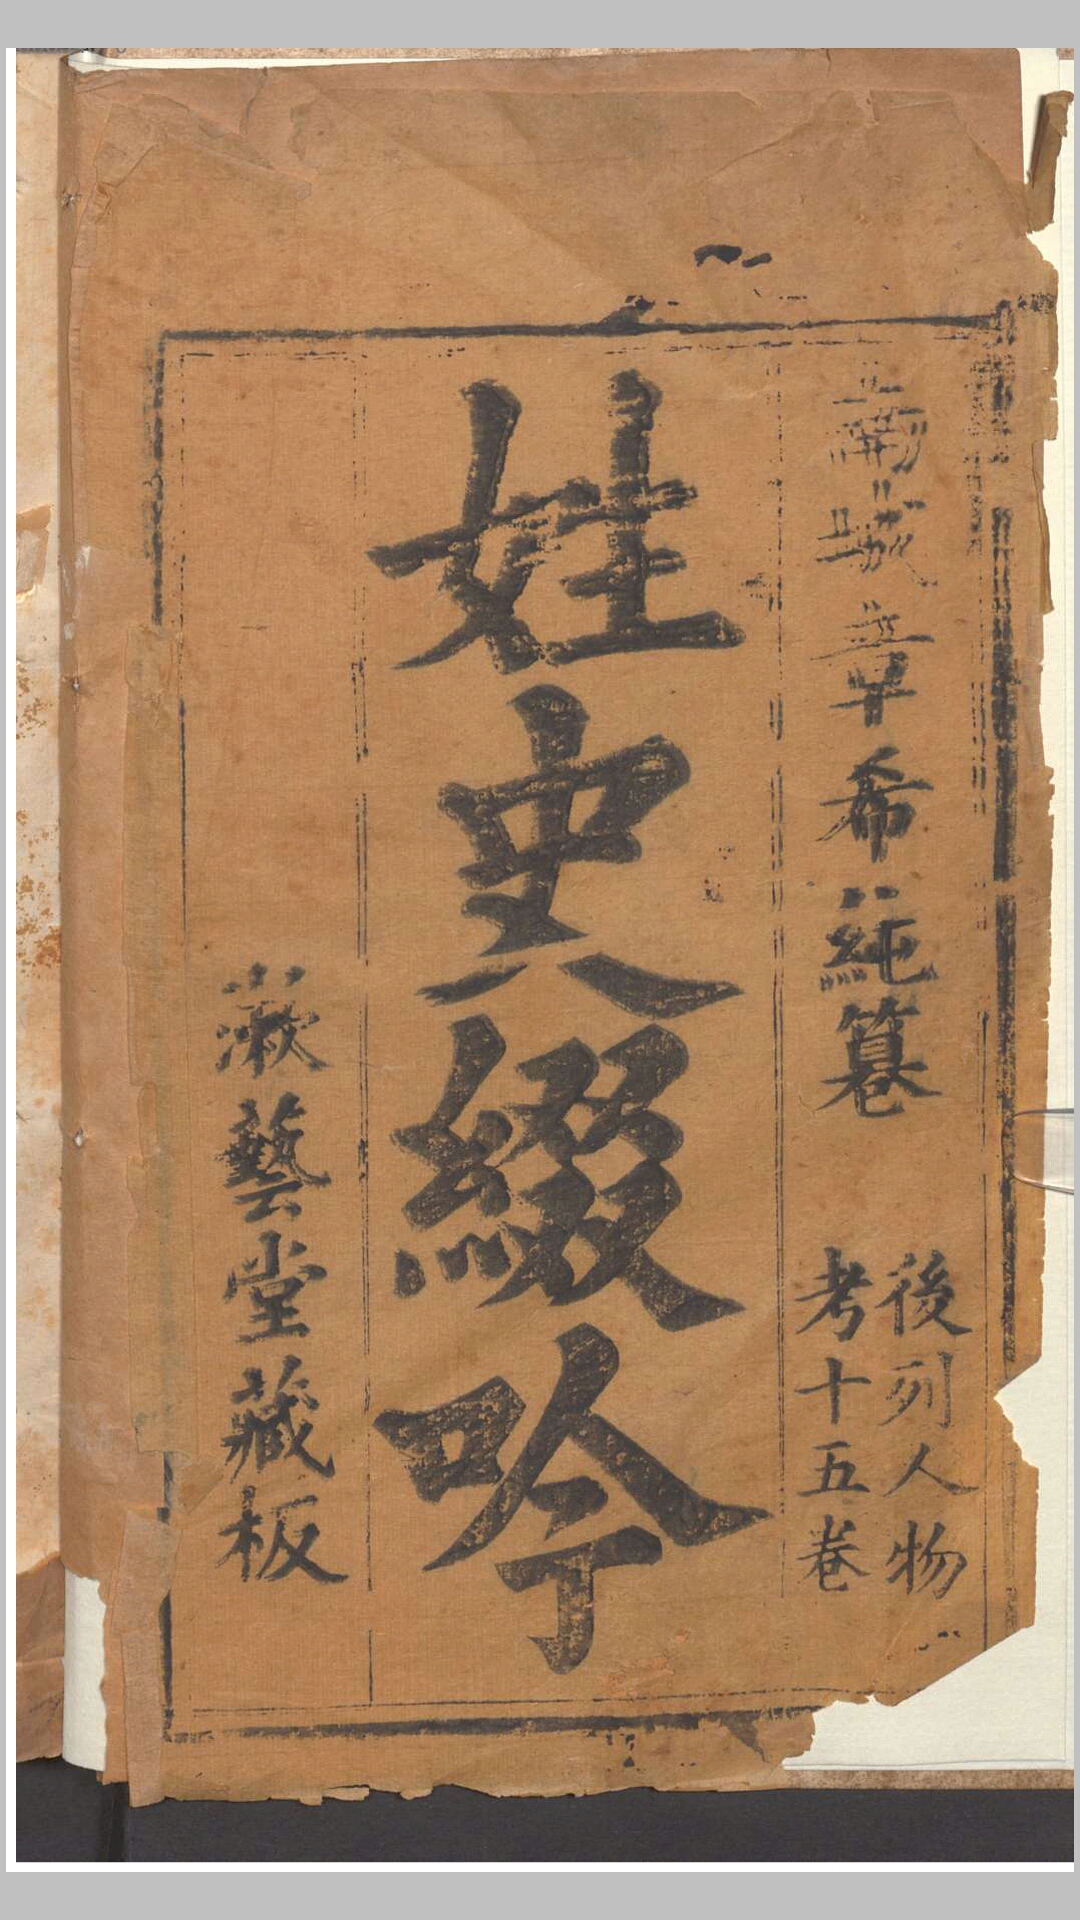 南城章希純纂
後列人物
考十五卷
姓史綴吟
漱藝堂藏板